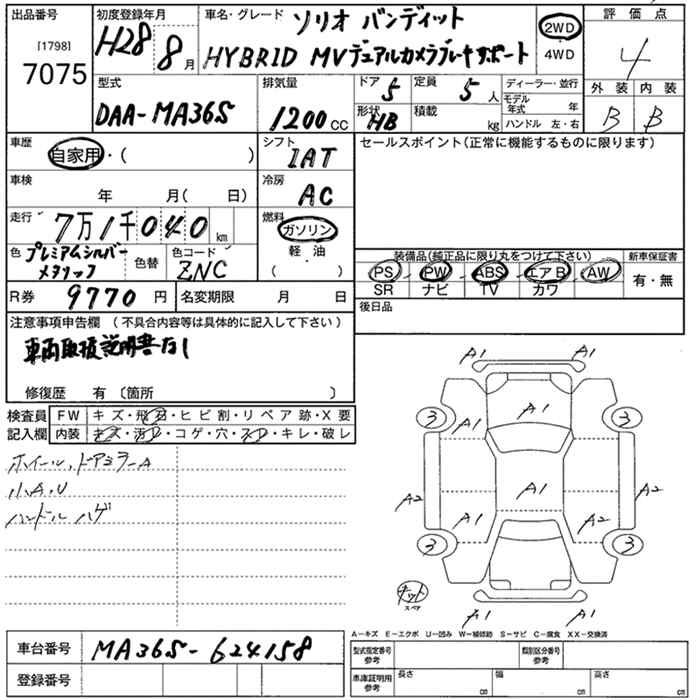 出品番号
[1798]
7075
初度登録年月
H28 8月
車名・グレード
ソリオ バンディット
HYBRID MVデュアルカメラブレーキサポート
2WD
4WD
評価点
4
外装 内装
B B
型式
DAA-MA36S
排気量
1200cc
ドア 5
定員 5人
形状 HB
積載 kg
ディーラー・並行
モデル年式 年
ハンドル 左・右
車歴
自家用・( )
シフト
IAT
セールスポイント(正常に機能するものに限ります)
車検
年 月( 日)
冷房
AC
走行
7万1千040km
燃料
ガソリン
軽・油
( )
色
プレミアムシルバー
メタリック
色替
色コード
ZNC
装備品(純正品に限り丸をつけて下さい)
PS PW ABS エアB AW
SR ナビ TV カワ
新車保証書
有・無
R券 9770円
名変期限 月 日
後日品
注意事項申告欄 (不具合内容等は具体的に記入して下さい)
車両取扱説明書なし
修復歴 有 〔箇所 〕
検査員
記入欄
FW キズ・飛石・ヒビ割・リペア跡・X要
内装 キズ・汚レ・コゲ・穴・スレ・キレ・破レ
ホイール、ドアミラーA
小A、U
ハンドル ハゲ
A1 A1
A1
3 3
A1
A2 A1 A2
A1 A2
3 3
キット
スペア
A1 A1
A-キズ E-エクボ U-凹み W-補修跡 S-サビ C-腐食 XX-交換済
車台番号 MA36S-624158
登録番号
型式指定番号
参考
類別区分番号
参考
車庫証明用
参考
長さ cm
幅 cm
高さ cm